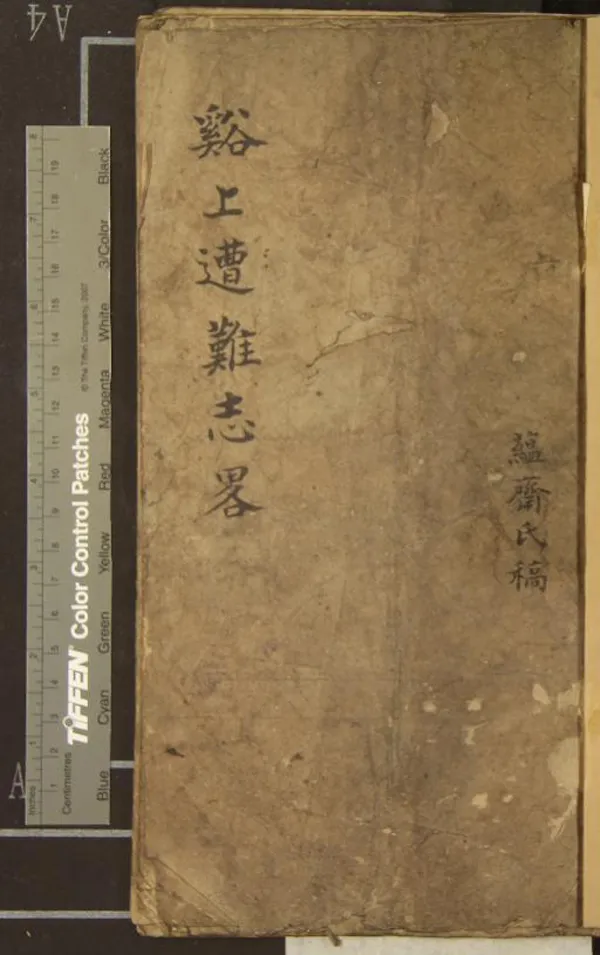 六
蘊齋氏稿
谿上遭難志畧
A4
A
TIFFEN Color Control Patches
© The Tiffen Company, 2007
Inches
1 2 3 4 5 6 7 8
Centimetres
1 2 3 4 5 6 7 8 9 10 11 12 13 14 15 16 17 18 19
Blue Cyan Green Yellow Red Magenta White 3/Color Black